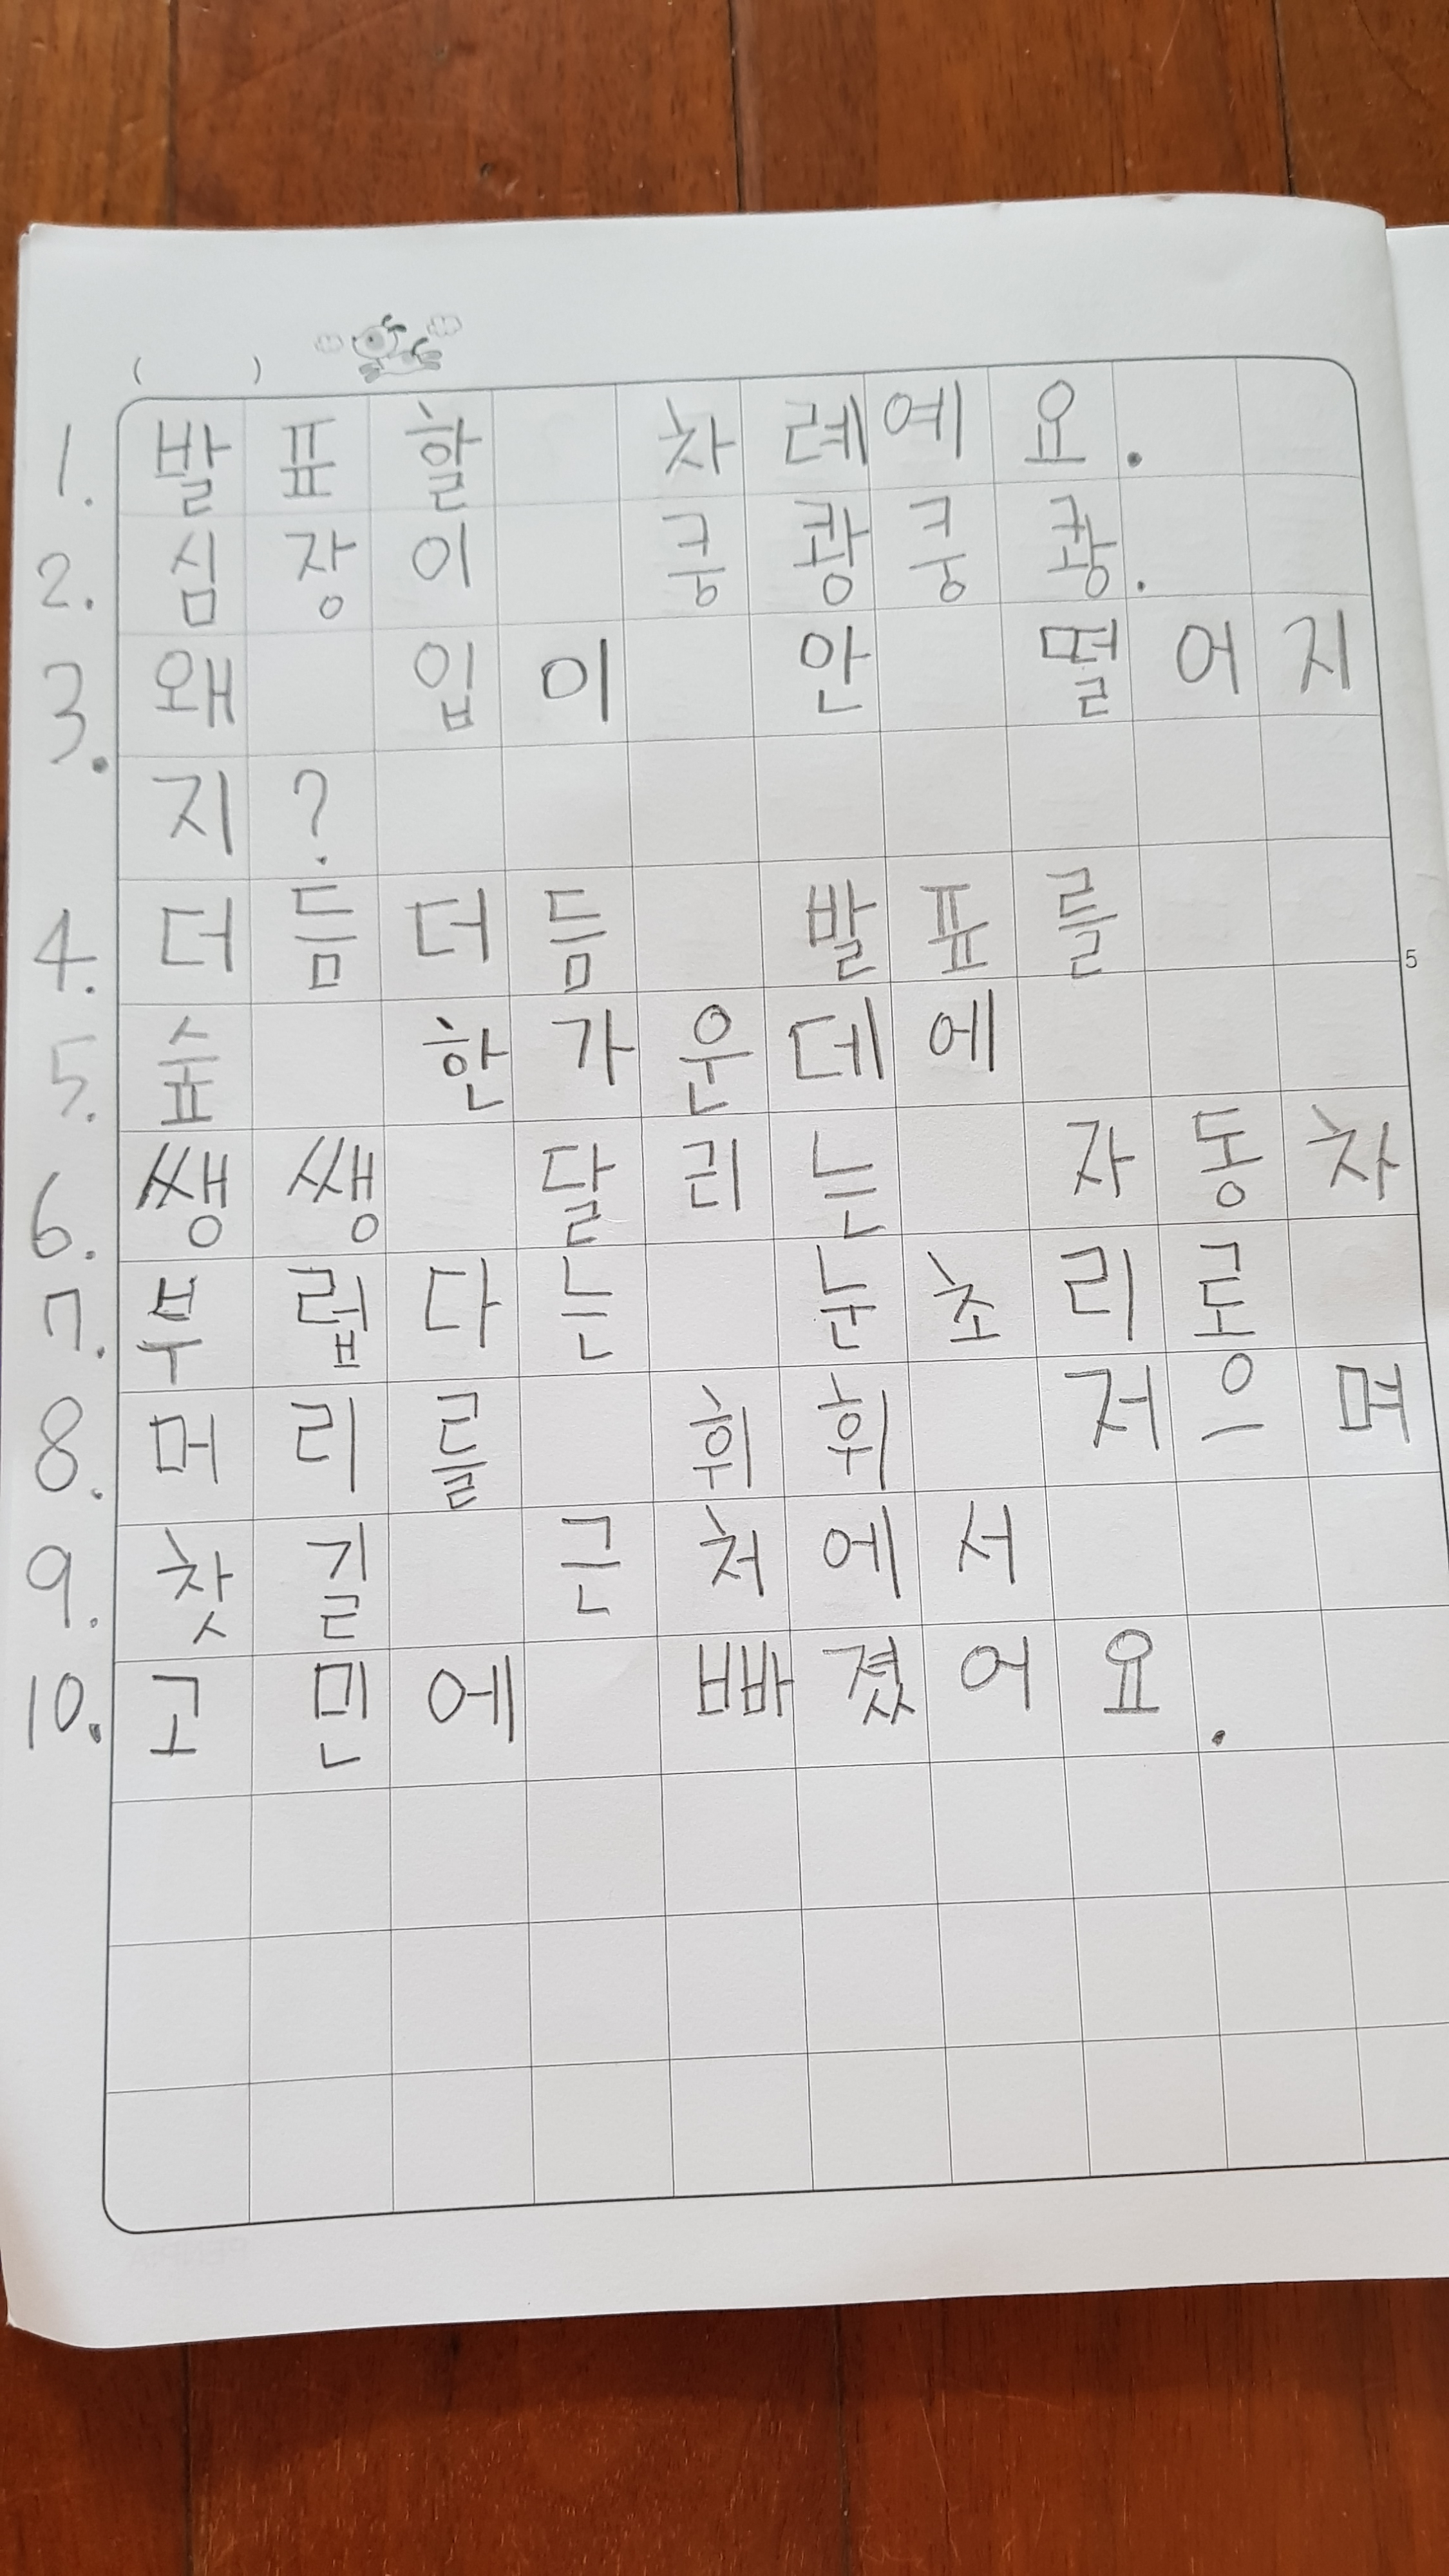 ( )
1. 발표할 차례예요.
2. 심장이 쿵쾅쿵쾅.
3. 왜 입이 안 떨어지
지?
4. 더듬더듬 발표를
5
5. 숲 한가운데에
6. 쌩쌩 달리는 자동차
7. 부럽다는 눈초리로
8. 머리를 휘휘 저으며
9. 찻길 근처에서
10. 고민에 빠졌어요.